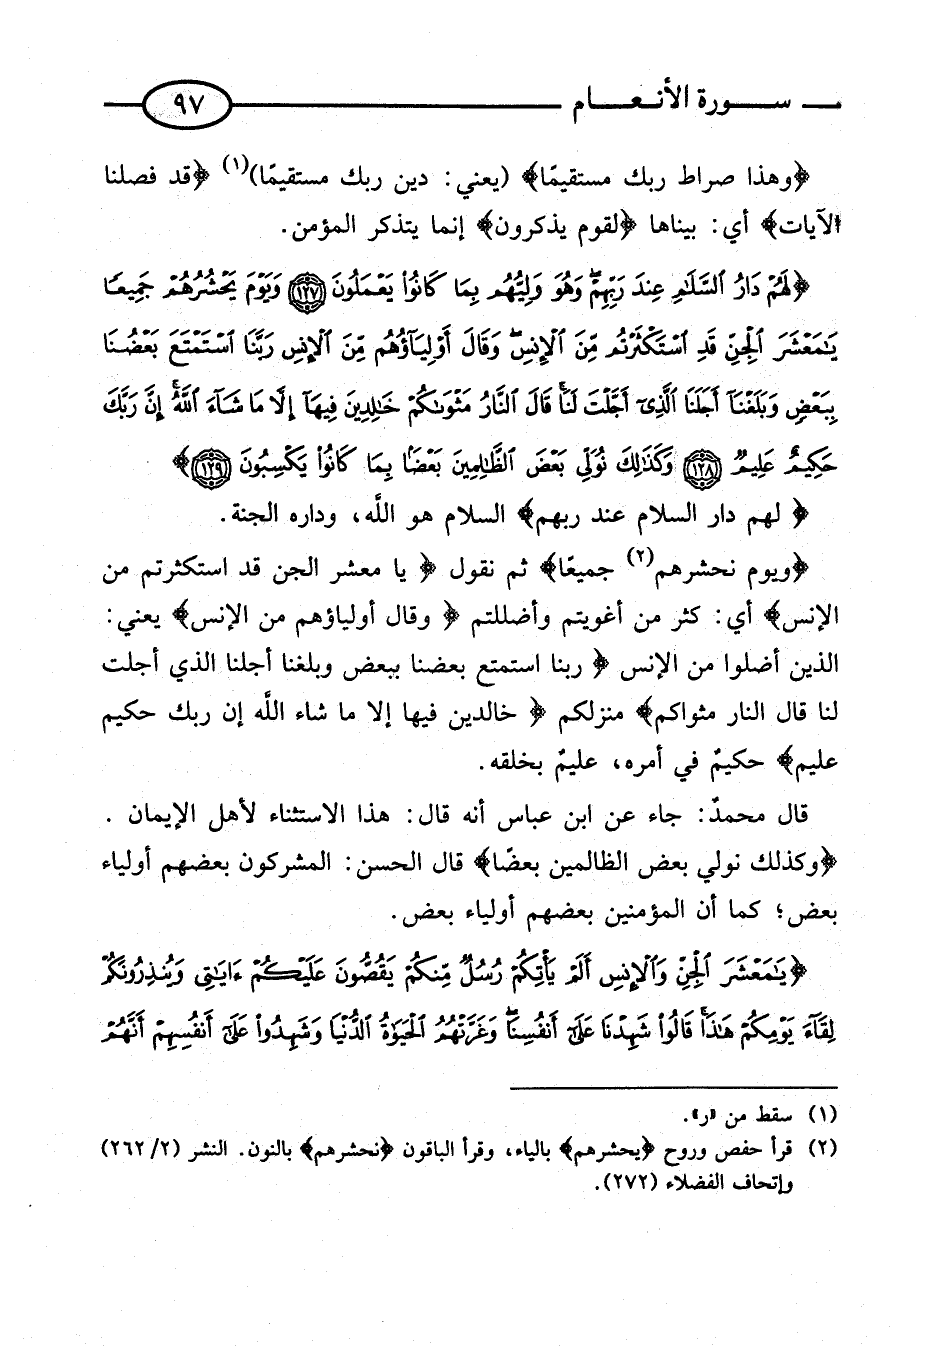 سورة الأنعام ٩٧
﴿وهذا صراط ربك مستقيمًا﴾ (يعني: دين ربك مستقيمًا)(١) ﴿قد فصلنا
الآيات﴾ أي: بيناها ﴿لقوم يذكرون﴾ إنما يتذكر المؤمن.
﴿لَهُمْ دَارُ السَّلَٰمِ عِندَ رَبِّهِمْ ۖ وَهُوَ وَلِيُّهُم بِمَا كَانُوا۟ يَعْمَلُونَ ﴿١٢٧﴾ وَيَوْمَ يَحْشُرُهُمْ جَمِيعًا
يَٰمَعْشَرَ ٱلْجِنِّ قَدِ ٱسْتَكْثَرْتُم مِّنَ ٱلْإِنسِ ۖ وَقَالَ أَوْلِيَآؤُهُم مِّنَ ٱلْإِنسِ رَبَّنَا ٱسْتَمْتَعَ بَعْضُنَا
بِبَعْضٍ وَبَلَغْنَآ أَجَلَنَا ٱلَّذِىٓ أَجَّلْتَ لَنَا ۚ قَالَ ٱلنَّارُ مَثْوَىٰكُمْ خَٰلِدِينَ فِيهَآ إِلَّا مَا شَآءَ ٱللَّهُ ۗ إِنَّ رَبَّكَ
حَكِيمٌ عَلِيمٌ ﴿١٢٨﴾ وَكَذَٰلِكَ نُوَلِّى بَعْضَ ٱلظَّٰلِمِينَ بَعْضًۢا بِمَا كَانُوا۟ يَكْسِبُونَ ﴿١٢٩﴾﴾
﴿ لهم دار السلام عند ربهم﴾ السلام هو اللَّه، وداره الجنة.
﴿ويوم نحشرهم(٢) جميعًا﴾ ثم نقول ﴿ يا معشر الجن قد استكثرتم من
الإنس﴾ أي: كثر من أغويتم وأضللتم ﴿ وقال أولياؤهم من الإنس﴾ يعني:
الذين أضلوا من الإنس ﴿ ربنا استمتع بعضنا ببعض وبلغنا أجلنا الذي أجلت
لنا قال النار مثواكم﴾ منزلكم ﴿ خالدين فيها إلا ما شاء اللَّه إن ربك حكيم
عليم﴾ حكيمٌ في أمره، عليمٌ بخلقه.
قال محمدٌ: جاء عن ابن عباس أنه قال: هذا الاستثناء لأهل الإيمان .
﴿وكذلك نولي بعض الظالمين بعضًا﴾ قال الحسن: المشركون بعضهم أولياء
بعض؛ كما أن المؤمنين بعضهم أولياء بعض.
﴿يَٰمَعْشَرَ ٱلْجِنِّ وَٱلْإِنسِ أَلَمْ يَأْتِكُمْ رُسُلٌ مِّنكُمْ يَقُصُّونَ عَلَيْكُمْ ءَايَٰتِى وَيُنذِرُونَكُمْ
لِقَآءَ يَوْمِكُمْ هَٰذَا ۚ قَالُوا۟ شَهِدْنَا عَلَىٰٓ أَنفُسِنَا ۖ وَغَرَّتْهُمُ ٱلْحَيَوٰةُ ٱلدُّنْيَا وَشَهِدُوا۟ عَلَىٰٓ أَنفُسِهِمْ أَنَّهُمْ
(١) سقط من «ر».
(٢) قرأ حفص وروح ﴿يحشرهم﴾ بالياء، وقرأ الباقون ﴿نحشرهم﴾ بالنون. النشر (٢/ ٢٦٢)
وإتحاف الفضلاء (٢٧٢).